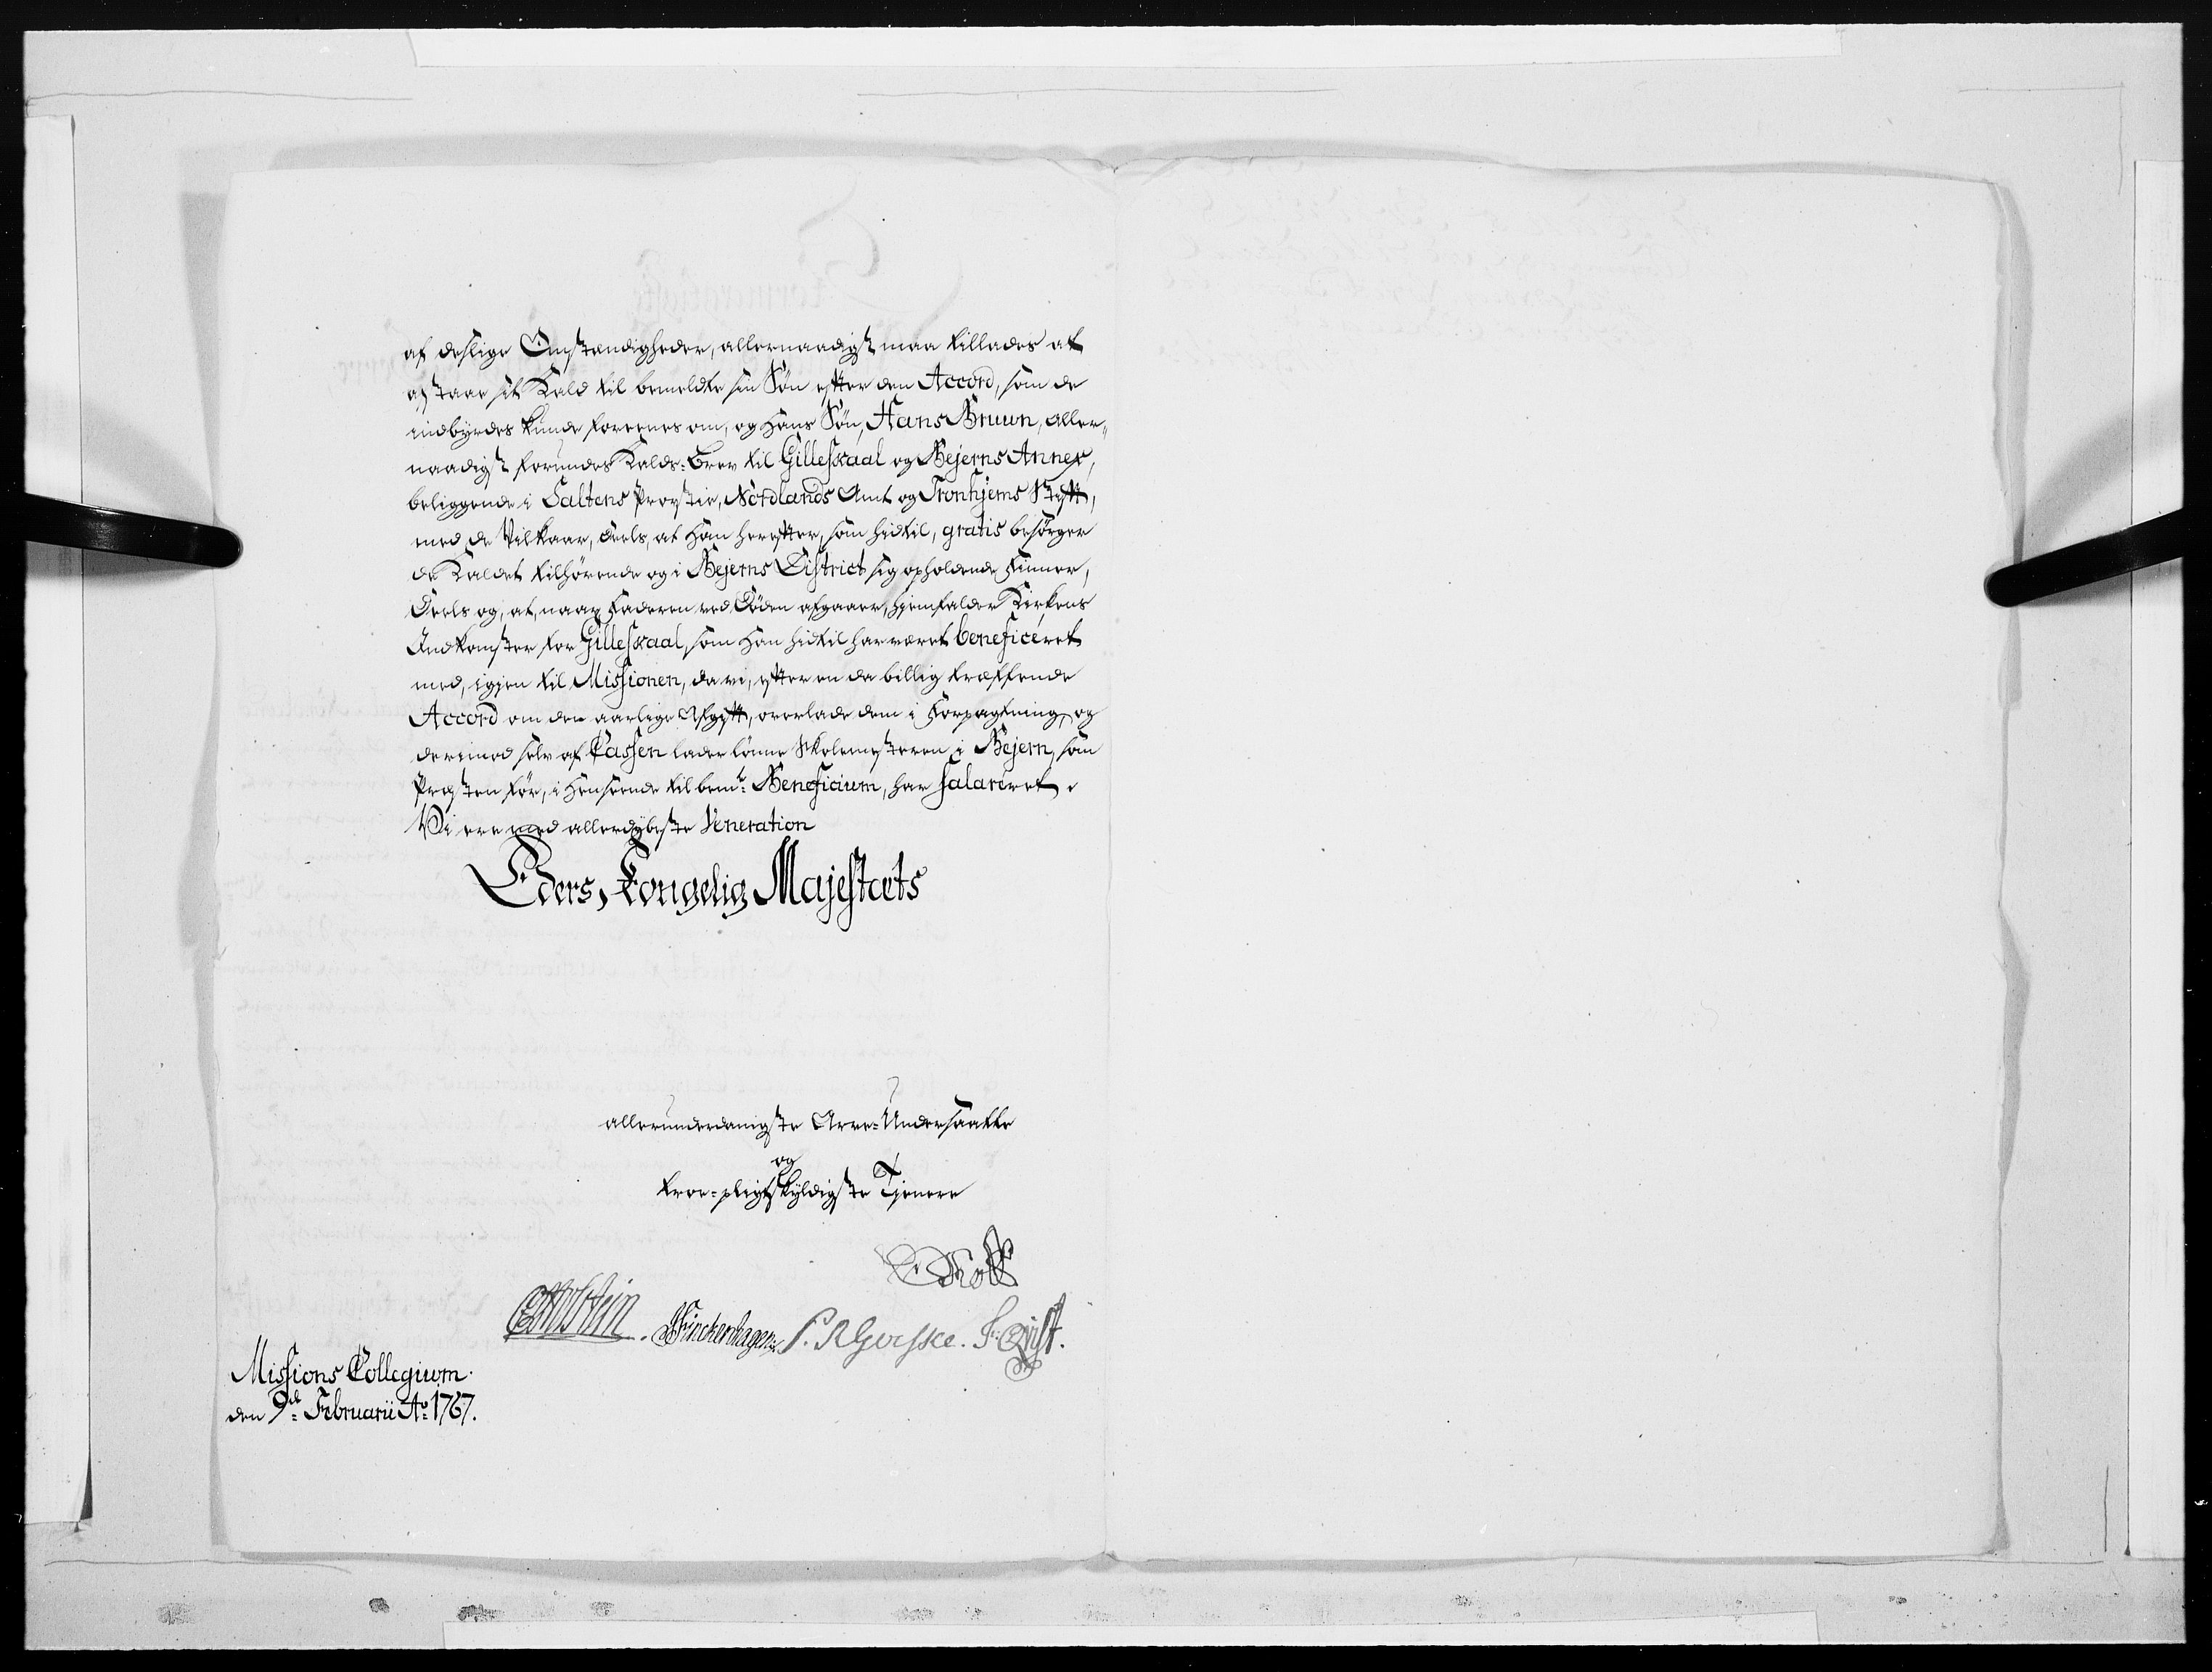 af deslige Omstændigheder, allernaadigst maa tillades at
afstaae sit Kald til bemeldte sin Søn efter den Accord, som de
indbyrdes kunde foreenes om, og hans Søn, Hans Bruun, aller-
naadigst forundes Kalds-Brev til Gilleskaal og Bejerns Annex,
beliggende i Saltens Provstie, Nordlands Amt og Tronhjems Stift,
med de Vilkaar, deels, at han herefter, som hidtil, gratis besørger
de Kaldet tilhørende og i Bejerns District sig opholdende Finner,
Deels og, at, naar Faderen ved Døden afgaaer, hjemfalder Kirkens
Indkomster for Gilleskaal, som han hidtil har været beneficeret
med, igjen til Missionen, da vi, efter en da billig træffende
Accord om den aarlige Afgift, overlade dem i Forpagtning, og
derimod selv af Cassen lader lønne Skolemesteren i Bejern, som
Præsten før, i Henseende til bemte Beneficium, har salareret.
Vi ere med allerdybeste Veneration
Eders Kongelig Majestæts
allerunderdanigste Arve-Undersaatte
og
troe-pligtskyldigste Tjenere
Holstein. Finckenhagen. F. Qvist.
Missions Collegium.
den 9de Februarii Ao 1767.